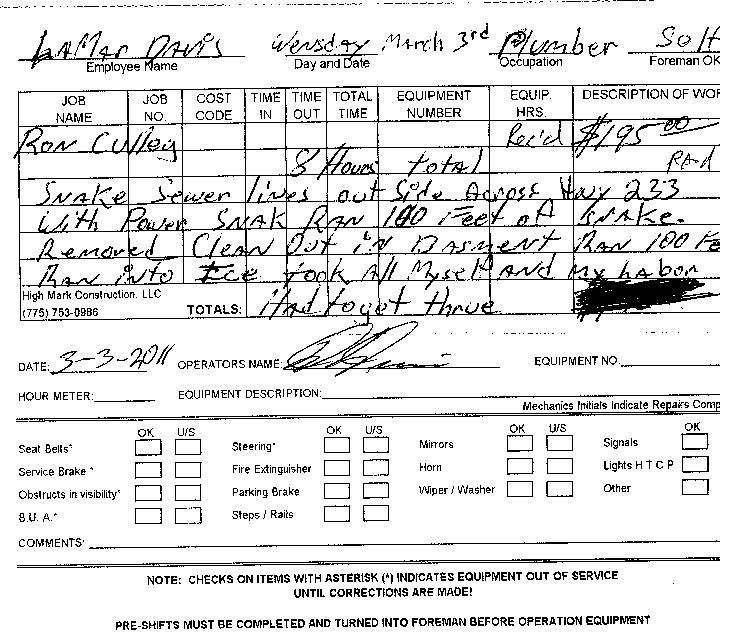 LaMar Davis Wensday March 3rd Plumber Solt
Employee Name Day and Date Occupation Foreman OK
JOB NAME JOB NO. COST CODE TIME IN TIME OUT TOTAL TIME EQUIPMENT NUMBER EQUIP. HRS. DESCRIPTION OF WOR
Ron Culley Rec'd $195.00
8 Hours total
Snake Sewer lines out Side Across Hwy 233
With Power SNAK RAN 100 Feet of snake.
Removed Clean Out in Basment RAN 100 Fe
Ran into Ice took All Myself and my Labor
High Mark Construction, LLC
(775) 753-0986 TOTALS: Had to get thrue
DATE: 3-3-2011 OPERATORS NAME: EQUIPMENT NO.
HOUR METER: EQUIPMENT DESCRIPTION:
Mechanics Initials Indicate Repairs Comp
OK U/S OK U/S OK U/S OK
Seat Belts* Steering* Mirrors Signals
Service Brake * Fire Extinguisher Horn Lights H T C P
Obstructs in visibility* Parking Brake Wiper / Washer Other
B.U. A.* Steps / Rails
COMMENTS:
NOTE: CHECKS ON ITEMS WITH ASTERISK (*) INDICATES EQUIPMENT OUT OF SERVICE
UNTIL CORRECTIONS ARE MADE!
PRE-SHIFTS MUST BE COMPLETED AND TURNED INTO FOREMAN BEFORE OPERATION EQUIPMENT